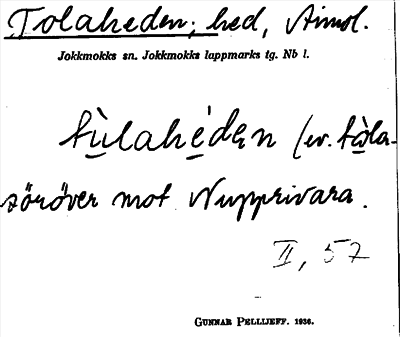 Tolaheden; hed,
Jokkmokks sn. Jokkmokks lappmarks tg. Nb l.
tùlahéden (ev. tòla-
söröver mot Nupprivara.
II, 57
GUNNAR PELLIJEFF. 1936.